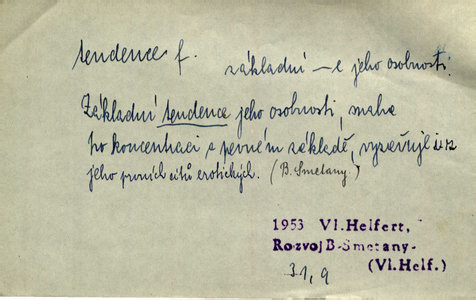 tendence f. základní – e jeho osobnosti
Základní tendence jeho osobnosti, snaha
po koncentraci a pevném základě, vyzařují i z
jeho prvních citů erotických. (B. Smetany.)
1953 Vl.Helfert,
Rozvoj B-Smetany-
(Vl.Helf.)
31,9